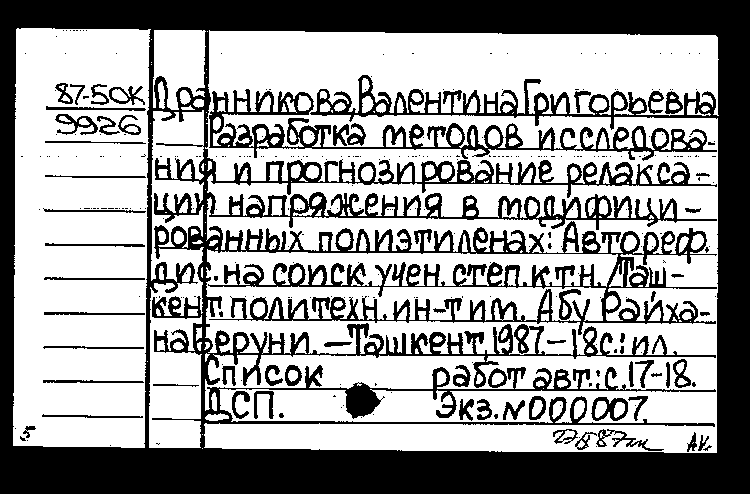 87-50К Дранникова, Валентина Григорьевна
9926 Разработка методов исследова-
ния и прогнозирование релакса-
ции напряжения в модифици-
рованных полиэтиленах: Автореф.
дис. на соиск. учен. степ. к.т.н. /Таш-
кент. политехн. ин-т им. Абу Райха-
на Беруни. — Ташкент, 1987. — 18с.: ил.
Список работ авт.: с. 17-18.
ДСП. Экз. N000007.
5 АК.